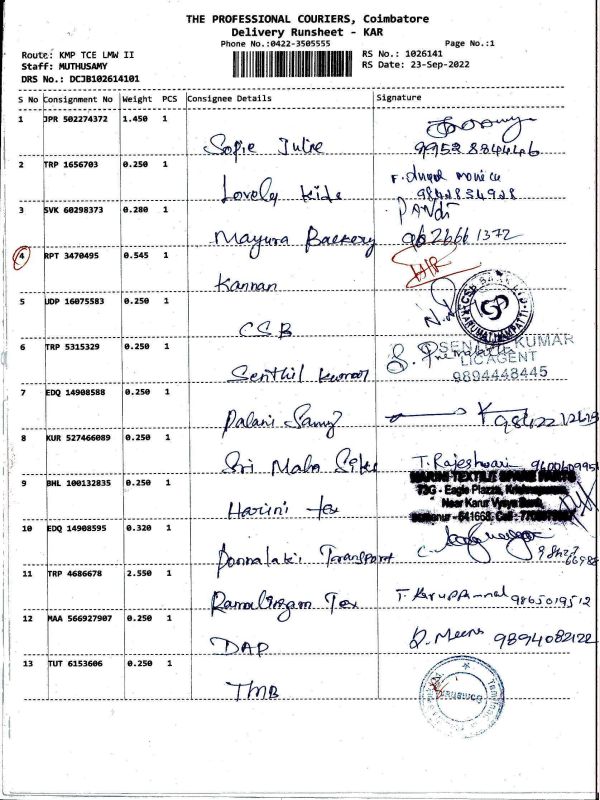 THE PROFESSIONAL COURIERS, Coimbatore
Delivery Runsheet - KAR
Phone No.:0422-3505555 Page No.:1
Route: KMP TCE LMW II RS No.: 1026141
Staff: MUTHUSAMY RS Date: 23-Sep-2022
DRS No.: DCJB102614101
S No Consignment No Weight PCS Consignee Details Signature
1 JPR 502274372 1.450 1
Sofie Julie 99528 84446
2 TRP 1656703 0.250 1
Lovely kids 9842834928
3 SVK 60298373 0.280 1 PANdi
Mayura Backery 96 26661372
4 RPT 3470495 0.545 1
Kannan
5 UDP 16075583 0.250 1
CSB
6 TRP 5315329 0.250 1 SENTHIL KUMAR
LIC AGENT
Senthil kumar 9894448445
7 EDQ 14908588 0.250 1
Palani Samy
8 KUR 527466089 0.250 1
Sri Maha T. Rajeshwari
9 BHL 100132835 0.250 1 HARINI TEXTILE SPARE PARTS
73G - Eagle Plazza,
Near Karur Vysya Bank,
Harini tex 641668,
10 EDQ 14908595 0.320 1
Transport
11 TRP 4686678 2.550 1
Ramalingam Tex T. Karuppammal 9865019512
12 MAA 566927907 0.250 1
DAP D. Meena 9894082122
13 TUT 6153606 0.250 1
TMB